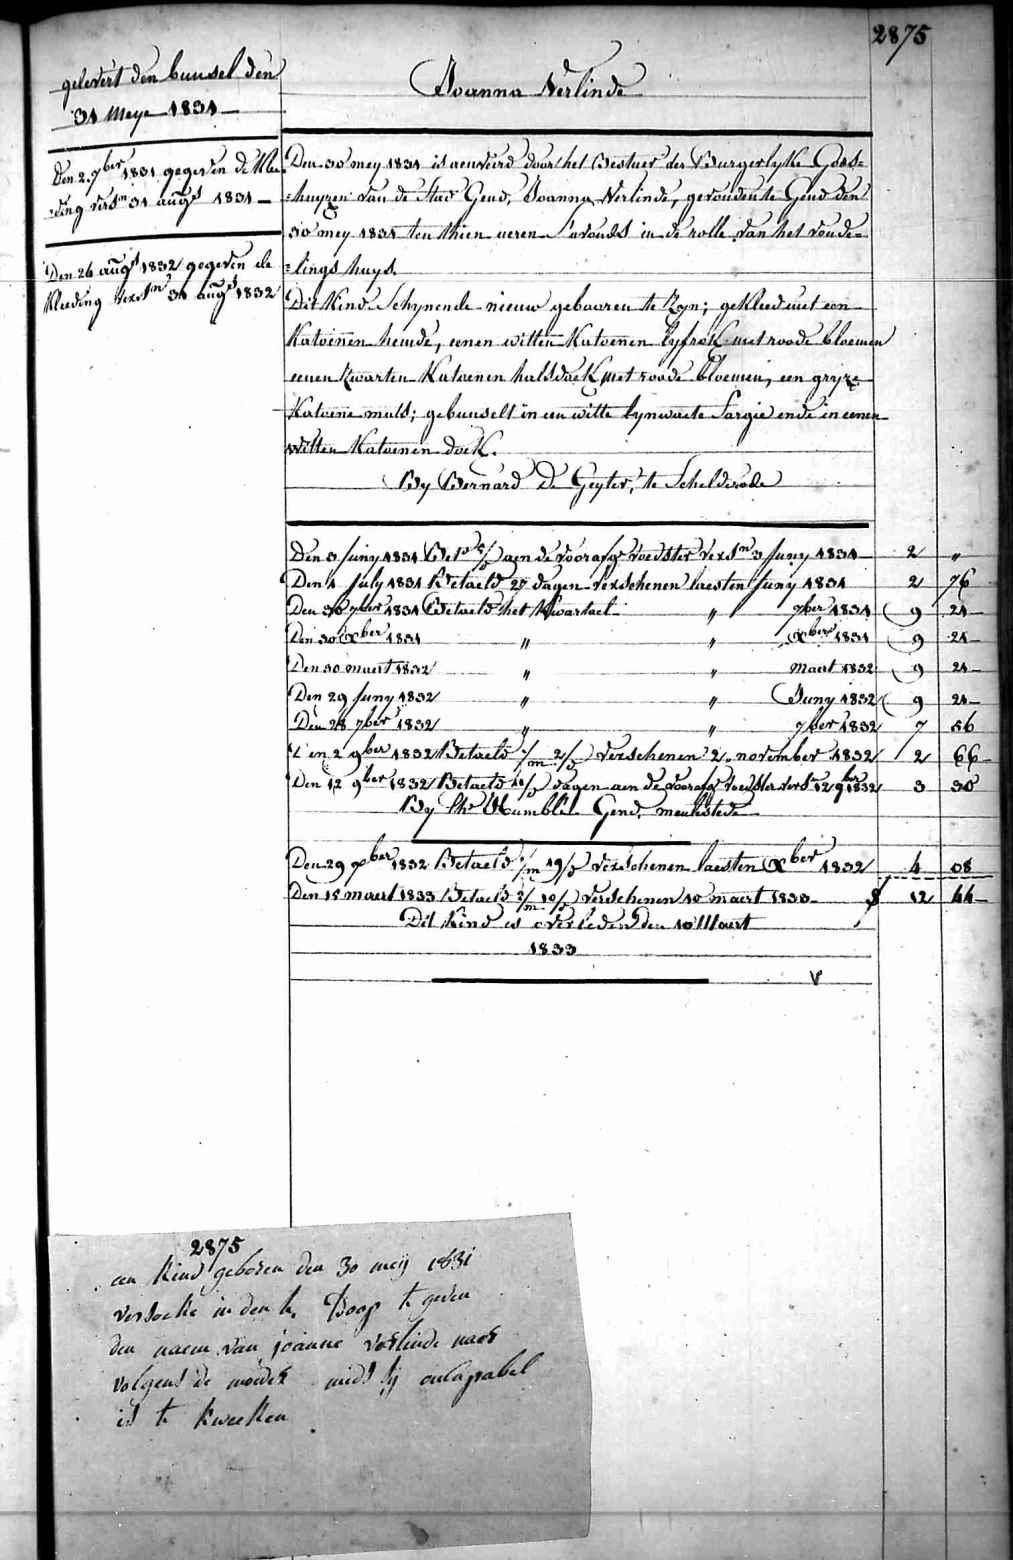 2875
gelevert den bunsel den
31 Meye 1831
Den 2 7ber 1831 gegeven de klee-
ding versn 31 augs 1831
Den 26 augs 1832 gegeven de
kleeding versn 31 augs 1832
Joanna Verlinde
Den 30 mey 1831 is aenveird door het Bestuer der Burgerlyke Gods=
=huyzen van de stad Gend, Joanna Verlinde, gevonden te Gend den
30 mey 1831 ten thien ueren s'avonds in de rolle van het vonde=
=lings huys.
Dit Kind schynende nieuw gebooren te zyn; gekleed met een
Katoenen hemde, eenen witten Katoenen lyfrok met roode bloemen
eenen zwarten Katoenen halsdoek met roode bloemen, een gryze
Katoene muts; gebunselt in een witte lynwaete sargie ende in eenen
witten Katoenen doek.
By Bernard De Geyter, te Schelderode
Den 3 Juny 1831 Bet aen de voorafg voedster versn 3 Juny 1831 2 "
Den 1 July 1831 Betaeld 27 dagen verschenen laesten Juny 1831 2 76
Den 30 7ber 1831 Betaeld het Kwartael " 7ber 1831 9 24
Den 30 Xber 1831 " " Xber 1831 9 24
Den 30 maert 1832 " " Maert 1832 9 24
Den 29 Juny 1832 " " Juny 1832 9 24
Den 28 7ber 1832 " " 7ber 1832 7 56
Den 2 9ber 1832 Betaeld 1/m 2/d verschenen 2 november 1832 2 66
Den 12 9ber 1832 Betaeld 10/d dagen aen de voorafg voedster vers 12 9ber 1832 3 30
By Humblé Gend, meulestede
Den 29 Xber 1832 Betaeld 1/m 19/d verschenen laesten Xber 1832 4 08
Den 15 maert 1833 Betaeld 2/m 10/d verschenen 10 maert 1833 12 44
Dit Kind is overleden den 10 Maert
1833
V
2875
een kind geboren den 30 meij 1831
versoeke in den h. Doop te geven
den naem van joanne verlinde naer
volgens de moeder mids sij oncapabel
is te kweeken.